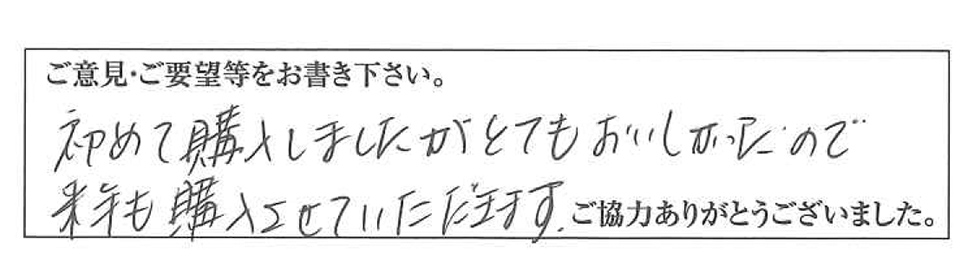 ご意見・ご要望等をお書き下さい。
初めて購入しましたがとてもおいしかったので
来年も購入させていただきます。ご協力ありがとうございました。